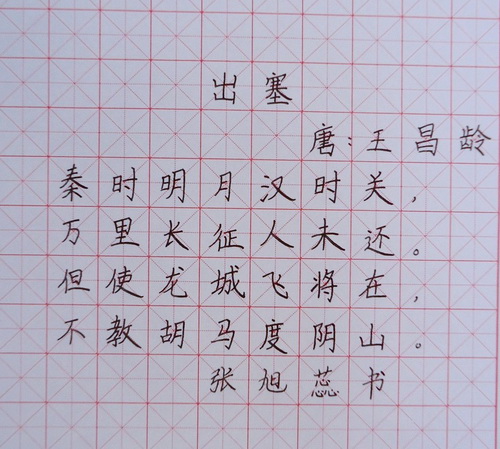 出塞
唐:王昌龄
秦时明月汉时关,
万里长征人未还。
但使龙城飞将在,
不教胡马度阴山。
张旭蕊书